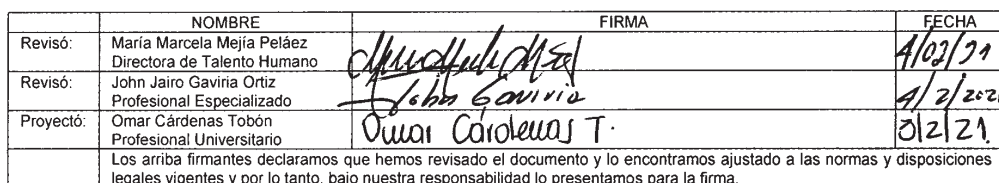 NOMBRE FIRMA FECHA
Revisó: María Marcela Mejía Peláez
Directora de Talento Humano 4/02/21
Revisó: John Jairo Gaviria Ortiz
Profesional Especializado John Gaviria 4/2/202
Proyectó: Omar Cárdenas Tobón
Profesional Universitario Omar Cárdenas T. 3/2/21
Los arriba firmantes declaramos que hemos revisado el documento y lo encontramos ajustado a las normas y disposiciones
legales vigentes y por lo tanto, bajo nuestra responsabilidad lo presentamos para la firma.